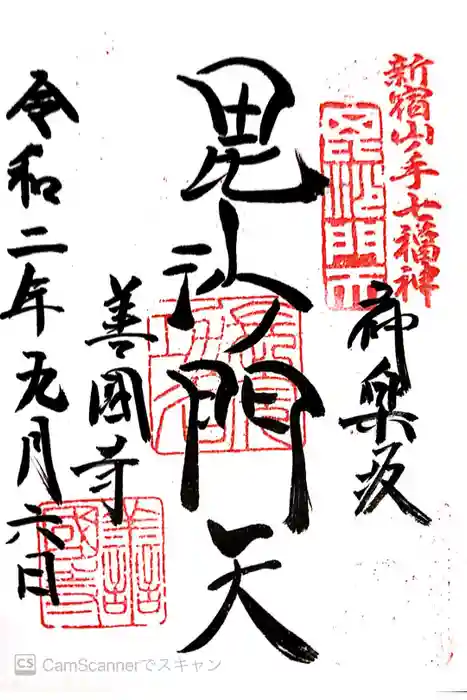 新宿山ノ手七福神
神楽坂
毘沙門天
善國寺
令和二年九月六日
CS CamScannerでスキャン